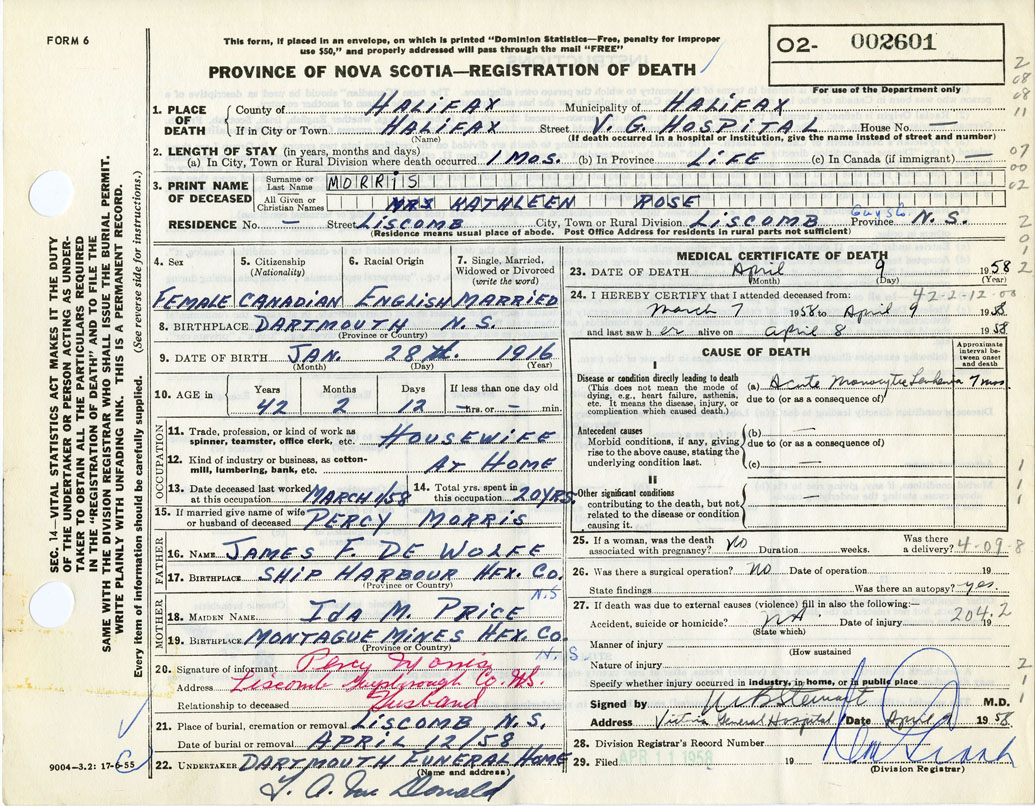 FORM 6
This form, if placed in an envelope, on which is printed "Dominion Statistics—Free, penalty for improper
use $50," and properly addressed will pass through the mail "FREE"
PROVINCE OF NOVA SCOTIA—REGISTRATION OF DEATH
02- 002601
For use of the Department only
1. PLACE OF DEATH County of HALIFAX Municipality of HALIFAX
If in City or Town HALIFAX Street V. G. HOSPITAL House No. —
(Name) (If death occurred in a hospital or institution, give the name instead of street and number)
2. LENGTH OF STAY (in years, months and days)
(a) In City, Town or Rural Division where death occurred 1 MOS. (b) In Province LIFE (c) In Canada (if immigrant) —
3. PRINT NAME OF DECEASED
Surname or Last Name MORRIS
All Given or Christian Names MRS KATHLEEN ROSE
RESIDENCE No. — Street LISCOMB City, Town or Rural Division LISCOMB Province N. S.
(Residence means usual place of abode. Post Office Address for residents in rural parts not sufficient)
4. Sex 5. Citizenship (Nationality) 6. Racial Origin 7. Single, Married, Widowed or Divorced (write the word)
FEMALE CANADIAN ENGLISH MARRIED
8. BIRTHPLACE DARTMOUTH N. S.
(Province or Country)
9. DATE OF BIRTH JAN. 28th. 1916
(Month) (Day) (Year)
10. AGE in Years Months Days If less than one day old
42 2 12 — hrs. or — min.
OCCUPATION
11. Trade, profession, or kind of work as
spinner, teamster, office clerk, etc. HOUSEWIFE
12. Kind of industry or business, as cotton-
mill, lumbering, bank, etc. AT HOME
13. Date deceased last worked
at this occupation MARCH 1/58
14. Total yrs. spent in
this occupation 20 YRS.
15. If married give name of wife
or husband of deceased PERCY MORRIS
FATHER
16. NAME JAMES F. DE WOLFE
17. BIRTHPLACE SHIP HARBOUR HFX. CO.
(Province or Country) N.S
MOTHER
18. MAIDEN NAME IDA M. PRICE
19. BIRTHPLACE MONTAGUE MINES HFX. CO.
(Province or Country) N. S.
20. Signature of informant Percy Morris
Address Liscomb Guysborough Co. N.S.
Relationship to deceased Husband
21. Place of burial, cremation or removal LISCOMB N.S.
Date of burial or removal APRIL 12/58
22. UNDERTAKER DARTMOUTH FUNERAL HOME
(Name and address)
9004—3.2: 17-6-55
MEDICAL CERTIFICATE OF DEATH
23. DATE OF DEATH April 9 1958
(Month) (Day) (Year)
24. I HEREBY CERTIFY that I attended deceased from:
March 7 1958 to April 9 1958
and last saw her alive on april 8 1958
CAUSE OF DEATH
Approximate interval between onset and death
I
Disease or condition directly leading to death
(This does not mean the mode of
dying, e.g., heart failure, asthenia,
etc. It means the disease, injury, or
complication which caused death.)
(a) Acute Monocytic Leukemia 7 mos.
due to (or as a consequence of)
Antecedent causes
Morbid conditions, if any, giving
rise to the above cause, stating the
underlying condition last.
(b) —
due to (or as a consequence of)
(c) —
II
Other significant conditions
contributing to the death, but not
related to the disease or condition
causing it.
—
25. If a woman, was the death
associated with pregnancy? No Duration weeks. Was there
a delivery? 4-09-8
26. Was there a surgical operation? No Date of operation 19
State findings Was there an autopsy? yes.
27. If death was due to external causes (violence) fill in also the following:—
204.2
Accident, suicide or homicide? NA. Date of injury 19
(State which)
Manner of injury
(How sustained
Nature of injury
Specify whether injury occurred in industry, in home, or in public place
Signed by Stewart M.D.
Address Victoria General Hospital Date April 9 1958.
28. Division Registrar's Record Number
29. Filed APR 11 1958 19
(Division Registrar)
SEC. 14—VITAL STATISTICS ACT MAKES IT THE DUTY
OF THE UNDERTAKER OR PERSON ACTING AS UNDER-
TAKER TO OBTAIN ALL THE PARTICULARS REQUIRED
IN THE "REGISTRATION OF DEATH" AND TO FILE THE
SAME WITH THE DIVISION REGISTRAR WHO SHALL ISSUE THE BURIAL PERMIT.
WRITE PLAINLY WITH UNFADING INK. THIS IS A PERMANENT RECORD.
Every item of information should be carefully supplied. (See reverse side for instructions.)